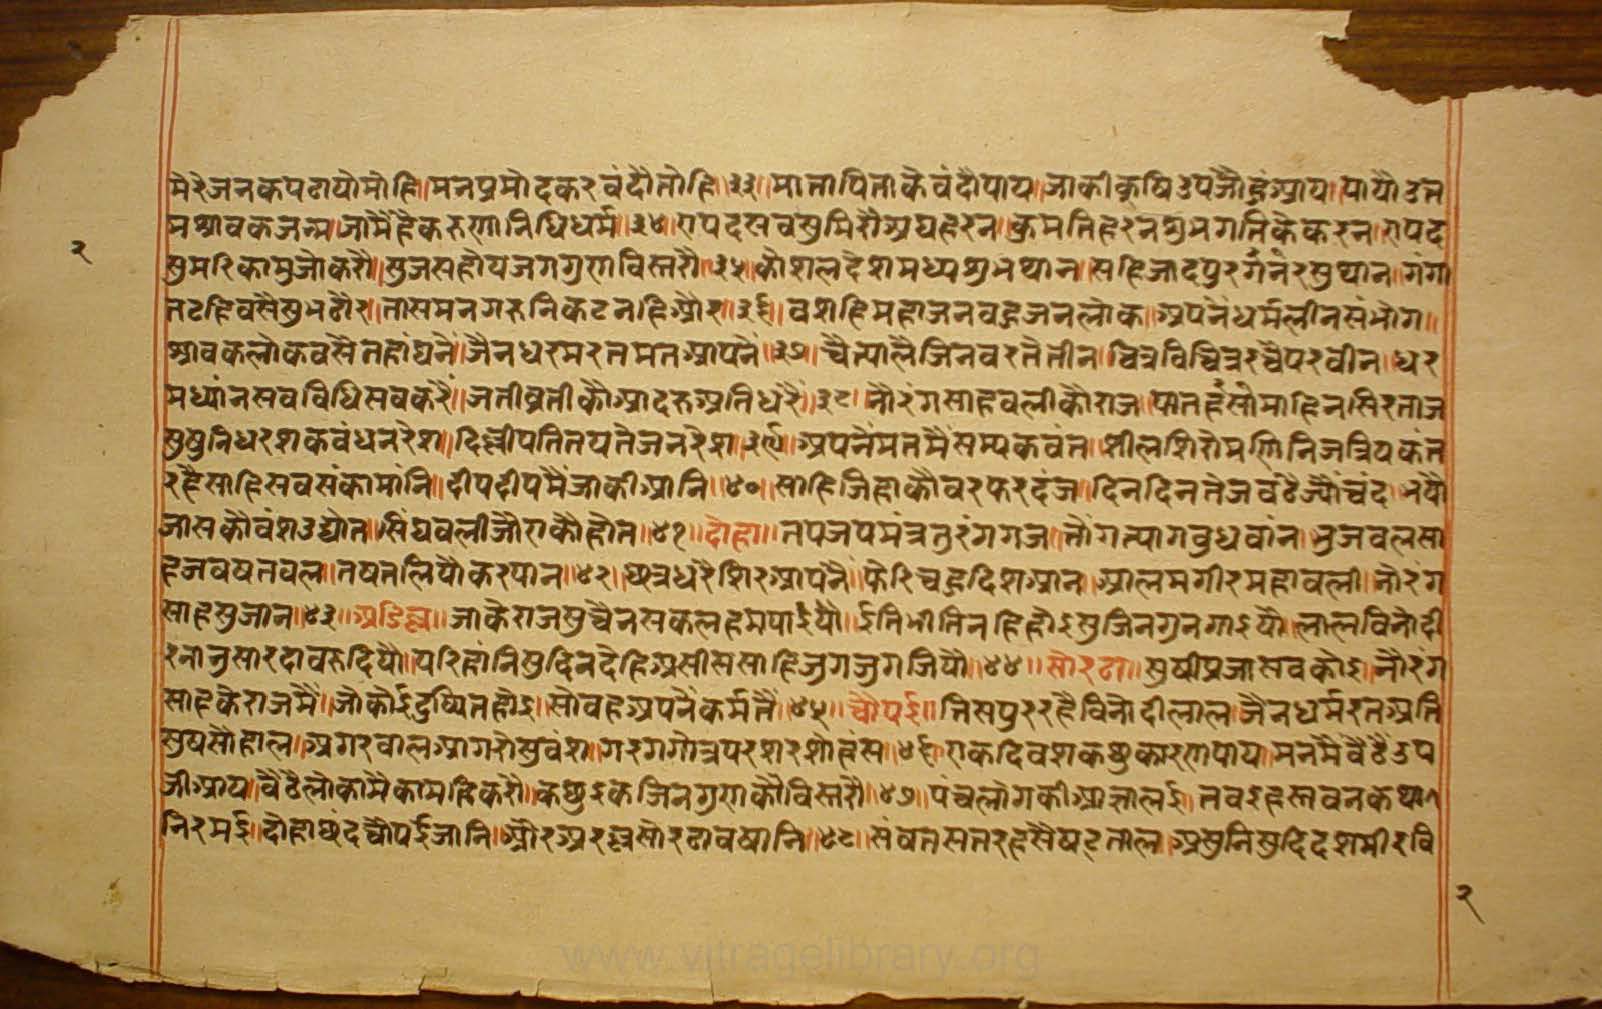 मेरेजनकपढायोमोहि॥मनप्रमोदकरवंदौतोहि॥३३॥मातापिताकेवंदौपाय॥जाकीकूषिउपजौहूंआय॥पायौउत
मश्रावकजन्म॥जामैंहैकरुणानिधिधर्म॥३४॥एपदसवसुमिरौअघहरन॥कुमतिहरनशुभगतिकेकरन॥एपद
२
सुमरिकामुजोकरौ॥सुजसहोयजगगुणविस्तरौ॥३५॥कौशलदेशमध्यशुभथान॥सहिजादपुरगंनंरसुथान॥गंगा
तटहिवसैसुभठौर॥तासमनगरुनिकटनहिऔर॥३६॥वशहिमहाजनवहुजनलोक॥अपनेंधर्मलीनसंभोग॥
श्रावकलोकवसैतहांघनें॥जैनधरमरतमतआपनें॥३७॥चैत्यालैजिनवरतैतीन॥चित्रविचित्ररचैपरवीन॥घर
मध्यांनसवविधिसवकरैं॥जतीव्रतीकौआदरुअतिधरैं॥३८॥नौरंगसाहवलीकौराज॥पातहंसोंमाहिनसिरताज
सुषुनिधरशकवंधनरेश॥दिल्लीपतितपतेजनरेश॥३९॥अपनेंमतमैंसम्यकवंत॥शीलशिरोमणिनिजत्रियकंत
रहैसाहिसवसंकामांनि॥दीपदीपमैंजाकीआनि॥४०॥साहिजिहाकौवरफरदंज॥दिनदिनतेजवंढैज्यौंचंद॥भयौ
जासकौवंशउद्योत॥सिंघवलीजौएकौहोत॥४१॥दोहा॥तपजपमंत्रतुरंगगज॥नौंगत्यागवुधवांन॥भुजवलसा
हजवषतवल॥तषतलियौकरपान॥४२॥छत्रधरैशिरआपंनें॥फेरिचहुदिशआन॥आलमगीरमहावली॥नोरंग
साहसुजान॥४३॥अडिल्ल॥जाकेराजसुचैनसकलहमपाईयौ॥ईतिभीतिनहिहोइसुजिनगुनगाइयौ॥लालविनोदी
रनानुसारदावरुदियौ॥परिहांनिसुदिनदेहिअसीससाहिजुगजुगजियौ॥४४॥सोरठा॥सुषीप्रजासवकोइ॥नौरंग
साहकेराजमैं॥जोकोईदुष्यितहोइ॥सोवहअपनेंकर्मतैं॥४५॥चौपई॥तिसपुररहैविनोदीलाल॥जैनधर्मरतअति
सुषसोहाल॥अगरवालआगरोसुवंश॥गरगगोत्रपरशरशोहंस॥४६॥एकदिवशकछुकारणपाय॥मनमैंवैठैंउप
जीआय॥वैठेलोकामैकामहिकरो॥कछुइकजिनगुणकौविस्तरौ॥४७॥पंचलोगकीआज्ञालई॥तवइहस्तवनकथा
निरमई॥दोहाछंदचौपईजानि॥औरअरल्लसोरठावषानि॥४८॥संवतसत्तरहसैषटताल॥असुनिसुदिदशमीरवि
२
www.vitragelibrary.org